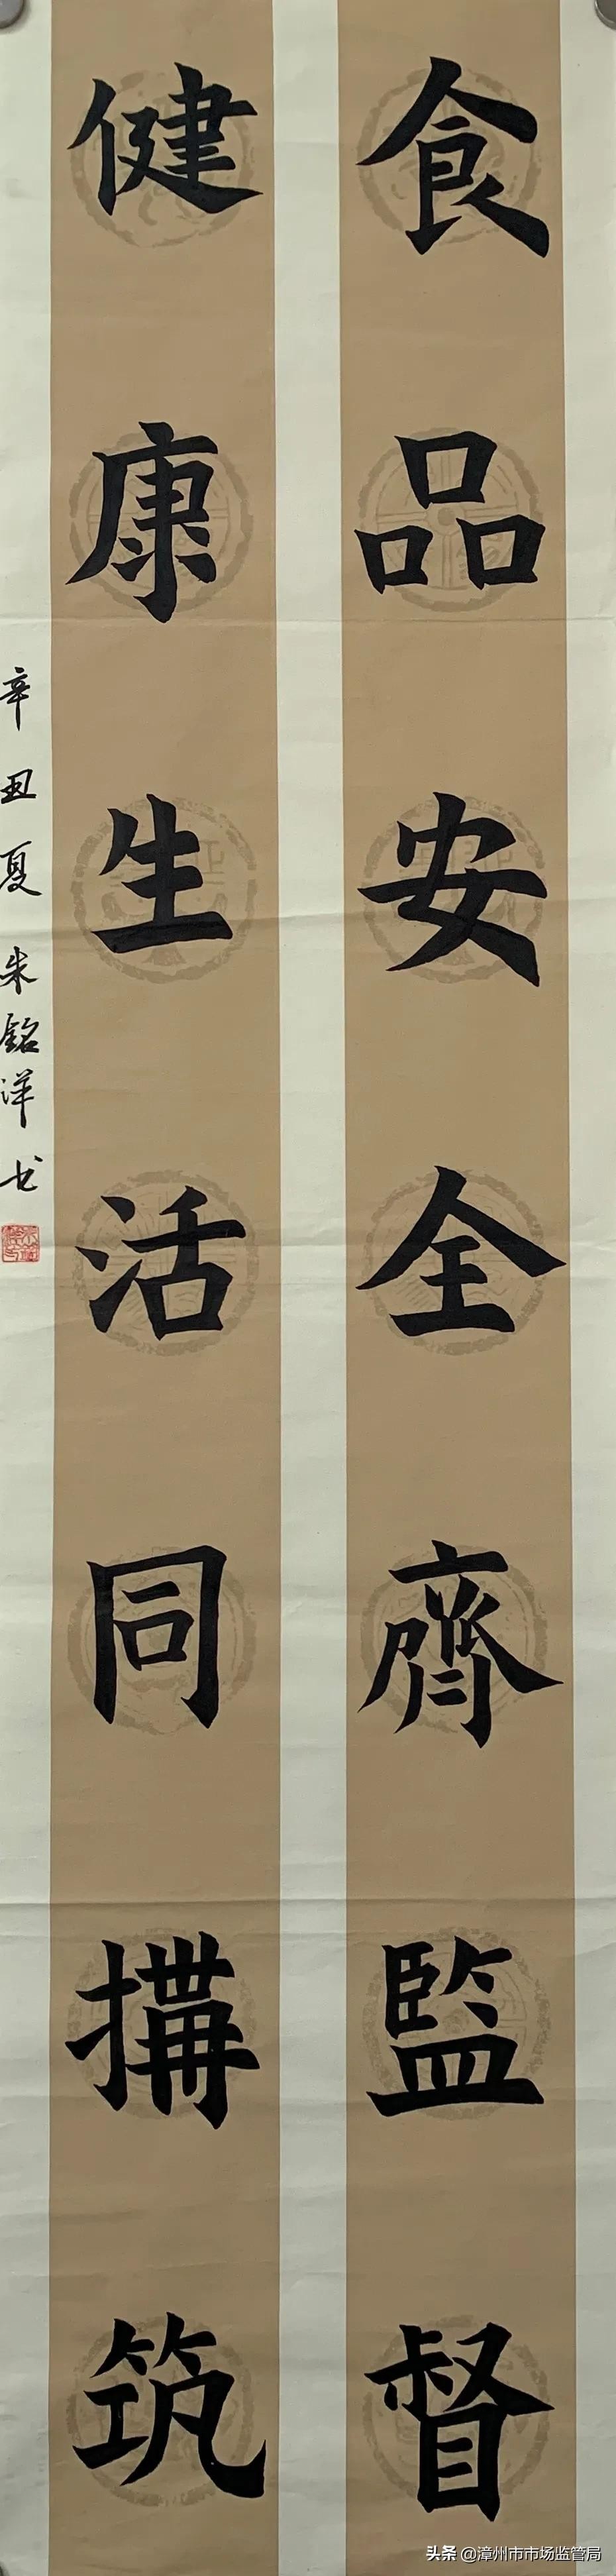 食品安全齊監督
健康生活同搆筑
辛丑夏朱銘洋书
头条 @漳州市市场监管局